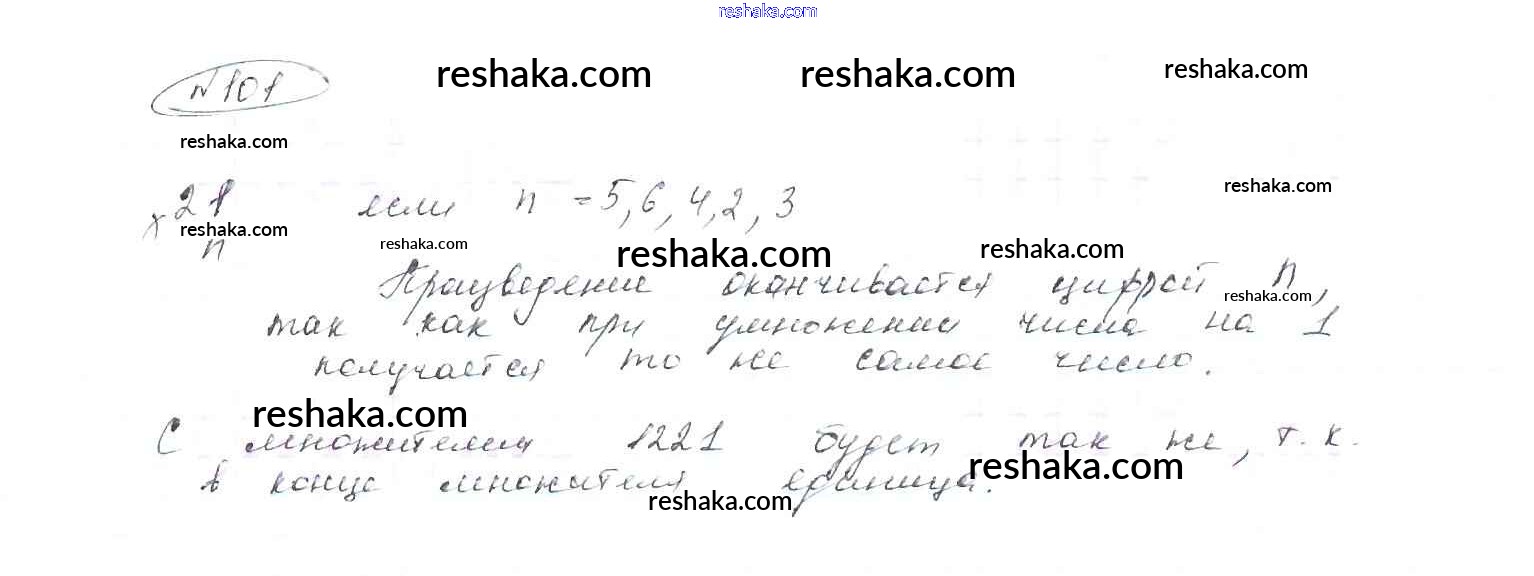 reshaka.com
№101
reshaka.com reshaka.com reshaka.com
reshaka.com
× 21 если n = 5, 6, 4, 2, 3
reshaka.com
reshaka.com reshaka.com
n reshaka.com reshaka.com
Произведение оканчивается цифрой n,
reshaka.com
так как при умножении числа на 1
получается то же самое число.
reshaka.com
С множителем 1221 будет так же, т. к.
reshaka.com
в конце множителя единица.
reshaka.com